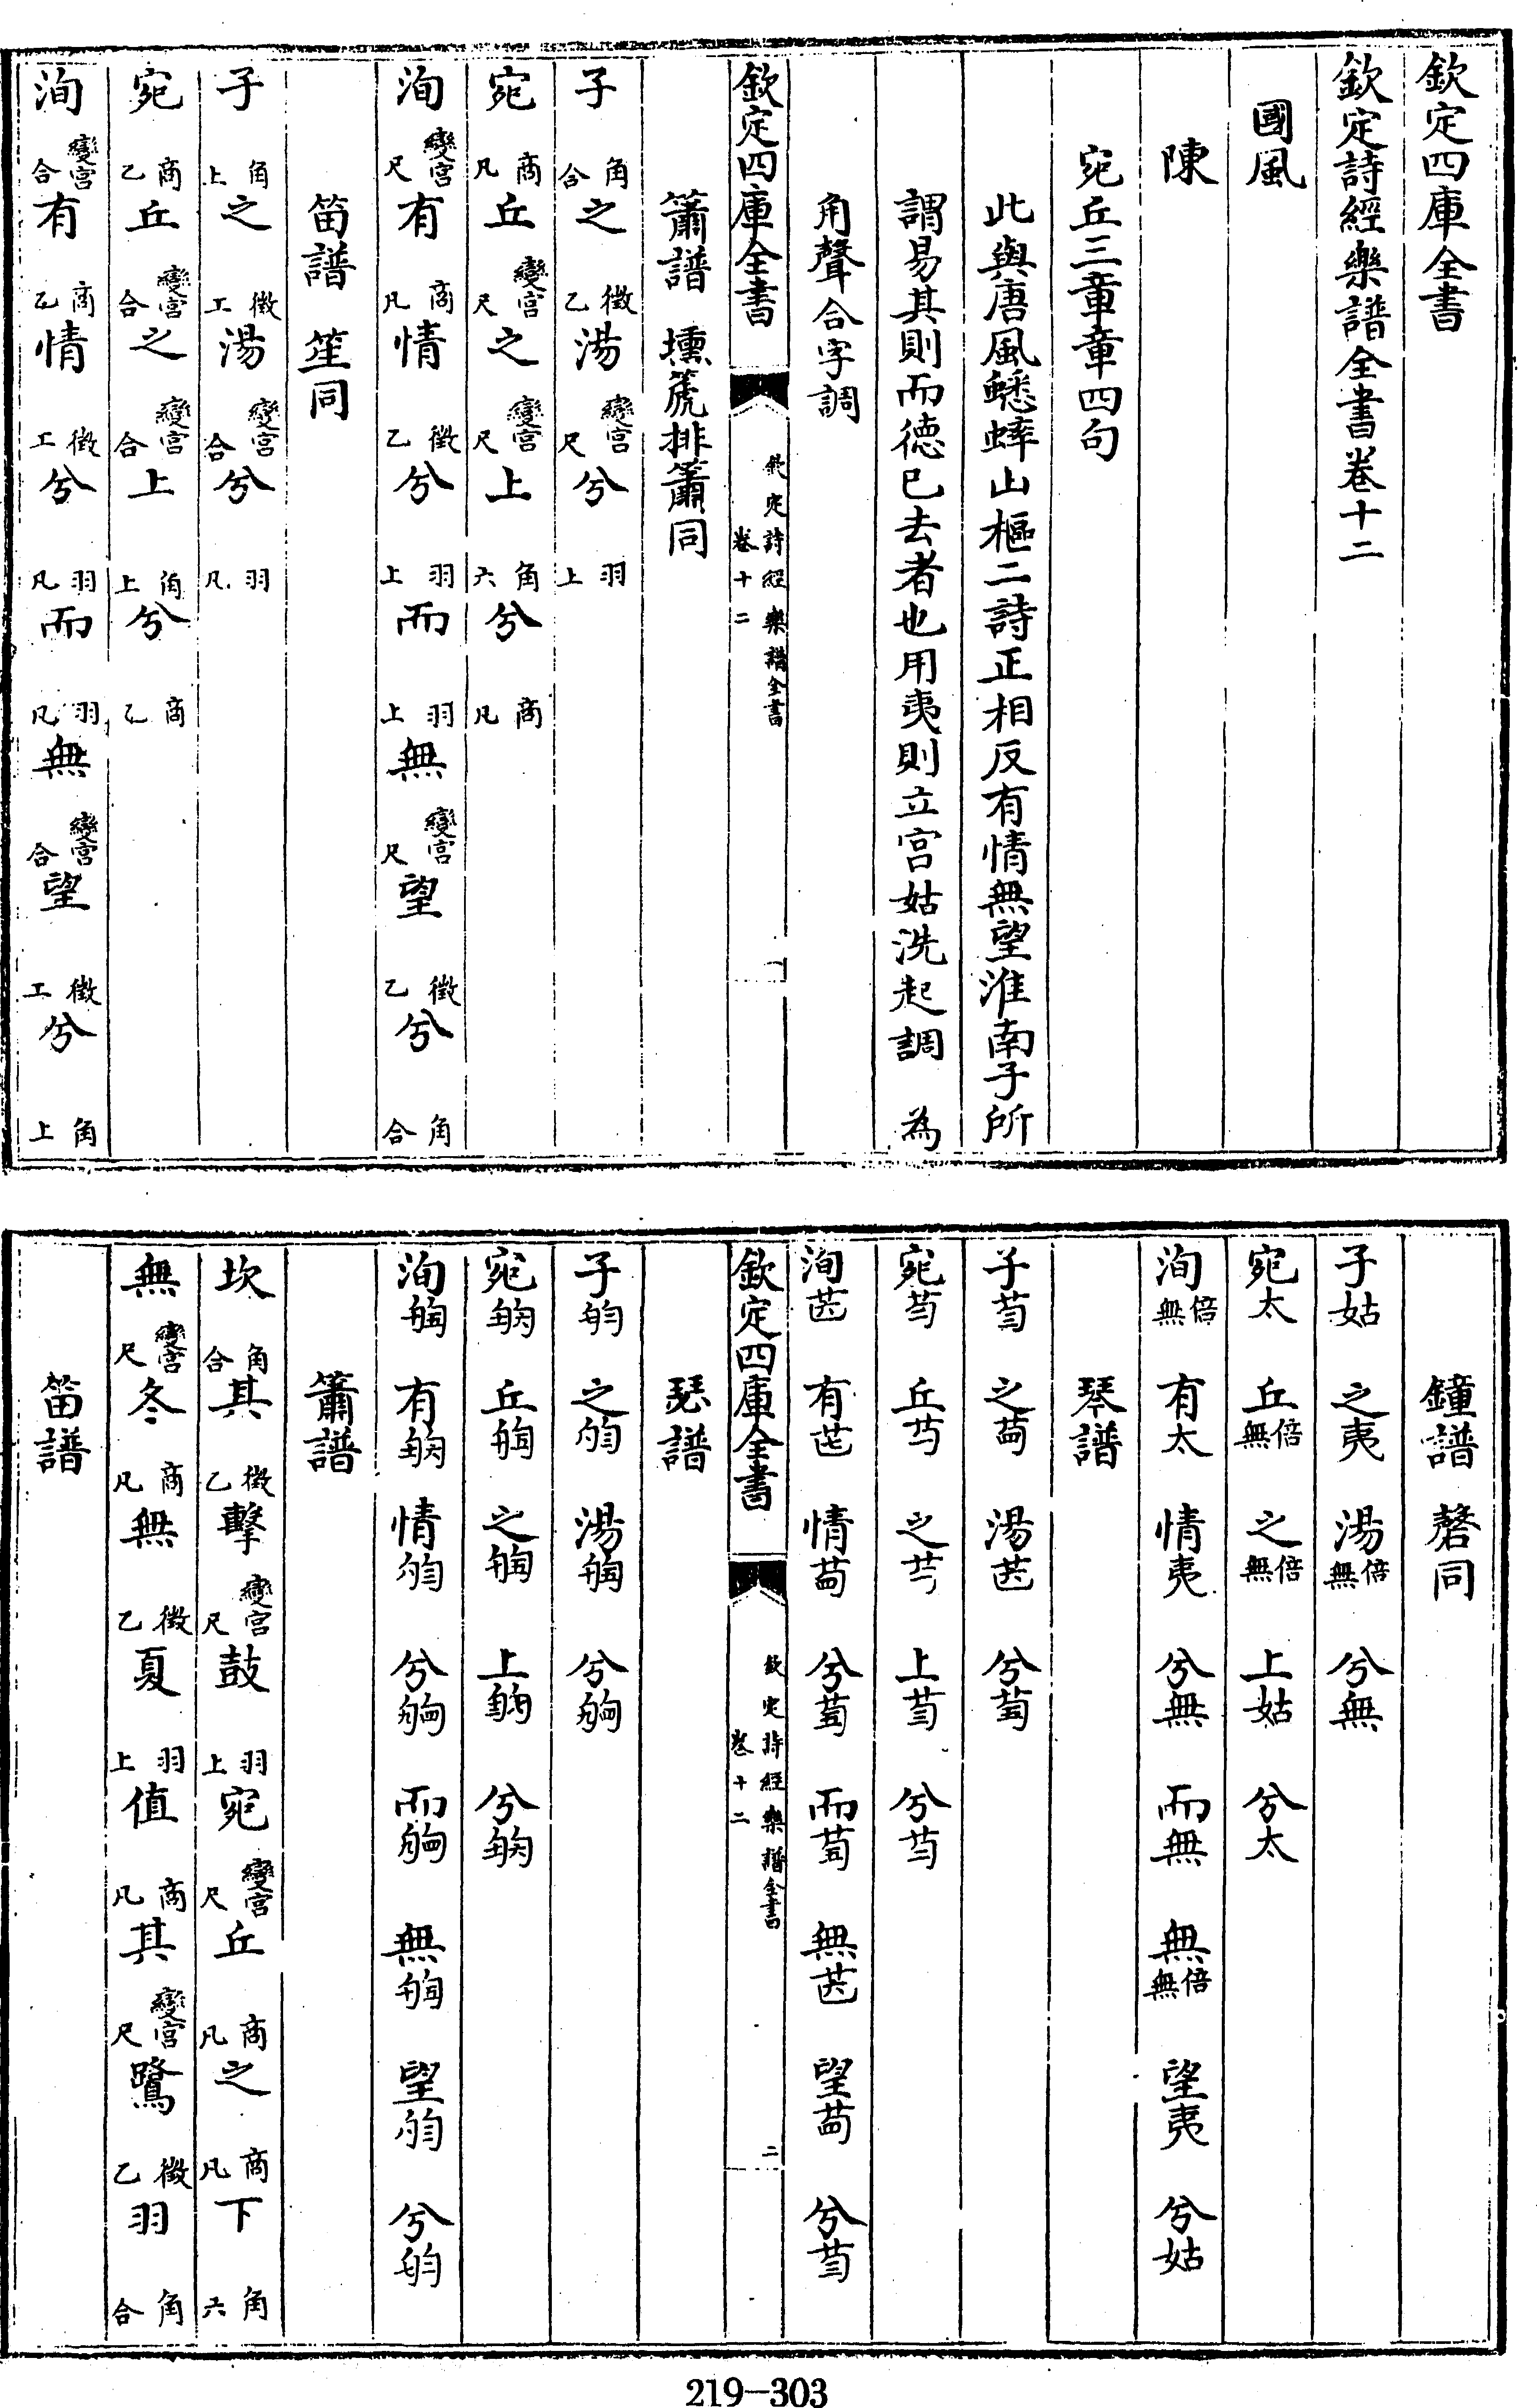 欽定四庫全書
欽定詩經樂譜全書卷十二
國風
陳
宛丘三章章四句
此與唐風蟋蟀山樞二詩正相反有情無望淮南子所
謂易其則而德已去者也用夷則立宮姑洗起調　為
角聲合字調
欽定四庫全書　欽定詩經樂譜全書　卷十二　一
簫譜　壎篪排簫同
子角合之徵乙湯變宮尺兮羽上
宛商凡丘變宮尺之變宮尺上角六兮商凡
洵變宮尺有商凡情徵乙兮羽上而羽上無變宮尺望徵乙兮角合
笛譜　笙同
子角上之徵工湯變宮合兮羽凡
宛商乙丘變宮合之變宮合上角上兮商乙
洵變宮合有商乙情徵工兮羽凡而羽凡無變宮合望徵工兮角上
鐘譜　磬同
子姑　之夷　湯倍無　兮無
宛太　丘倍無　之倍無　上姑　兮太
洵倍無　有太　情夷　兮無　而無　無倍無　望夷　兮姑
琴譜
子　之　湯　兮
宛　丘　之　上　兮
洵　有　情　兮　而　無　望　兮
欽定四庫全書　欽定詩經樂譜全書　卷十二　二
瑟譜
子　之　湯　兮
宛　丘　之　上　兮
洵　有　情　兮　而　無　望　兮
簫譜
坎角合其徵乙擊變宮尺鼓羽上宛變宮尺丘商凡之商凡下角六
無變宮尺冬商凡無徵乙夏羽上值商凡其變宮尺鷺徵乙羽角合
笛譜
219-303